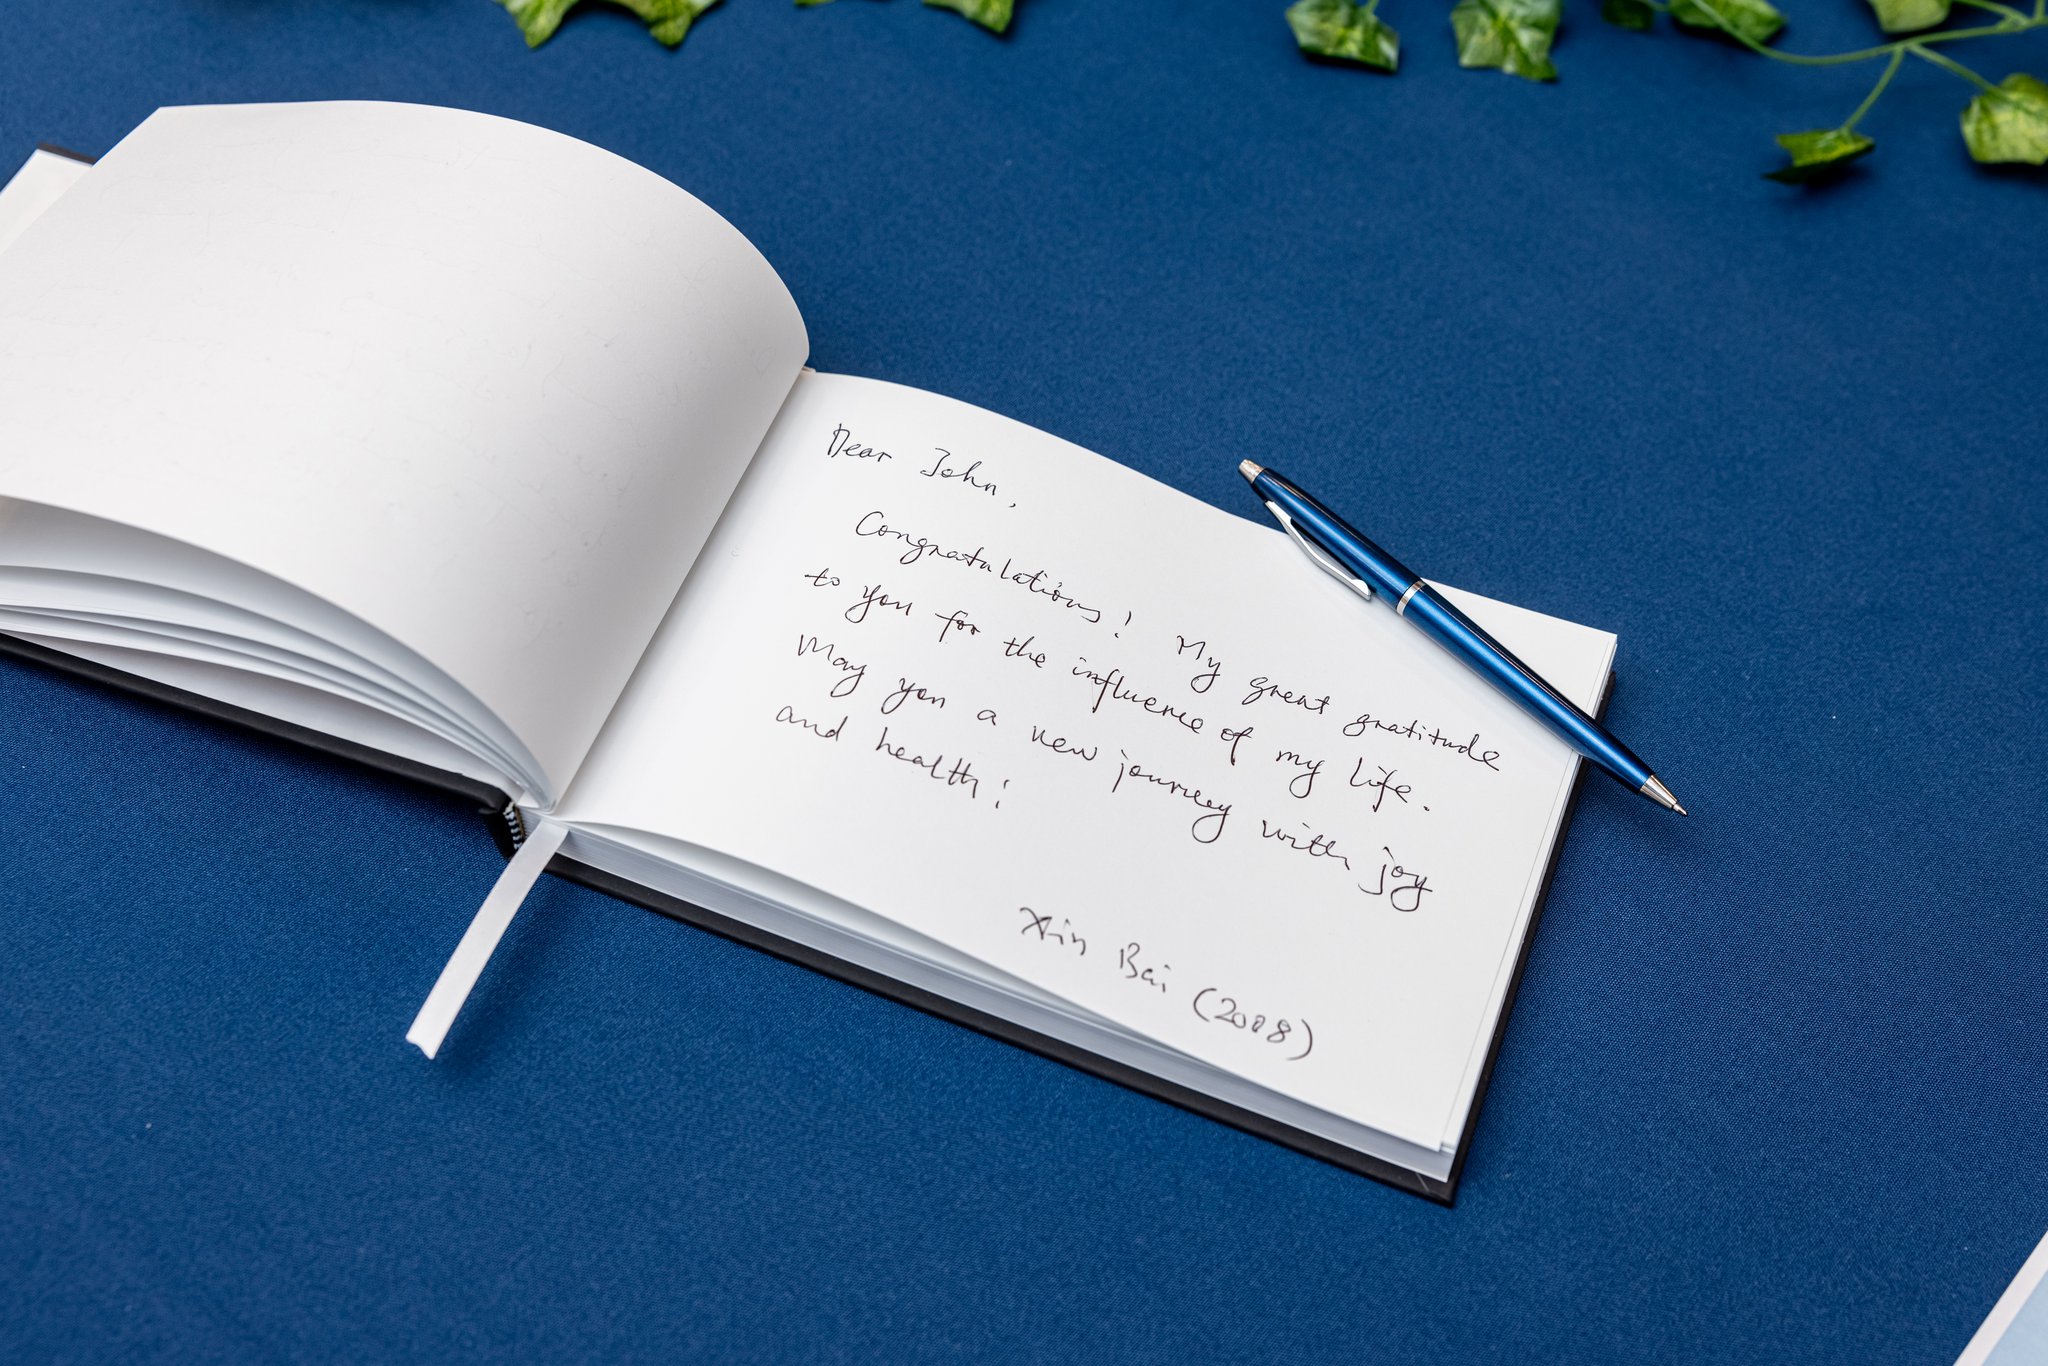 Dear John,
Congratulations! My great gratitude
to you for the influence of my life.
May you a new journey with joy
and health!
Xin Bai (2008)